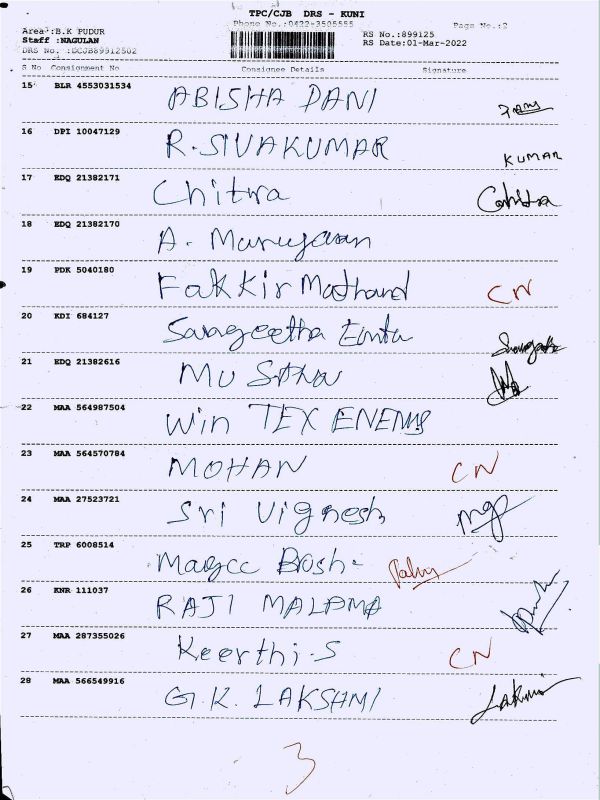 TPC/CJB DRS - KUNI
Phone No.:0422-3505555
Page No.:2
Area :B.K PUDUR
RS No.:899125
Staff :NAGULAN
RS Date:01-Mar-2022
DRS No. :DCJB89912502
S No Consignment No Consignee Details Signature
15 BLR 4553031534 ABISHA DANI
16 DPI 10047129 R. SIVAKUMAR KUMAR
17 EDQ 21382171 Chitra Chitra
18 EDQ 21382170 A. Murugasan
19 PDK 5040180 Fakkir Mothand CN
20 KDI 684127 Sangeetha
21 EDQ 21382616
22 MAA 564987504 Win TEX
23 MAA 564570784 MOHAN CN
24 MAA 27523721 Sri Vignesh
25 TRP 6008514
26 KNR 111037 RAJI
27 MAA 287355026 Keerthi.S CN
28 MAA 566549916 G.K. LAKSHMI
3